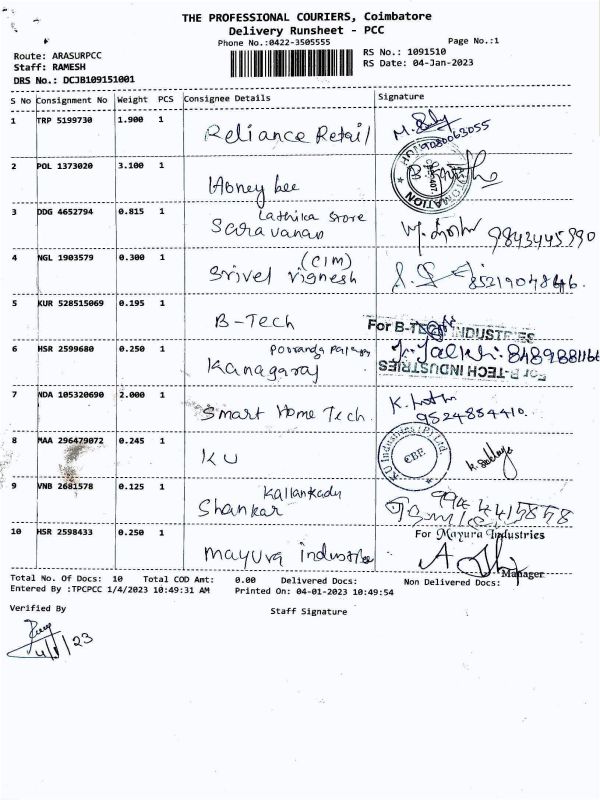 THE PROFESSIONAL COURIERS, Coimbatore
Delivery Runsheet - PCC
Phone No.:0422-3505555
Page No.:1
Route: ARASURPCC
RS No.: 1091510
Staff: RAMESH
RS Date: 04-Jan-2023
DRS No.: DCJB109151001
S No Consignment No Weight PCS Consignee Details Signature
1 TRP 5199730 1.900 1 Reliance Retail
9080063055
2 POL 1373020 3.100 1 Honey bee
3 DDG 4652794 0.815 1 Lathika Store
Saravanan 9843445990
4 NGL 1903579 0.300 1 (CIM)
Srivel Vignesh 8521904846.
5 KUR 528515069 0.195 1 B-Tech
For B-TECH INDUSTRIES
6 HSR 2599680 0.250 1
Kanagaraj 8489881166
For B-TECH INDUSTRIES
7 NDA 105320690 2.000 1 Smart Home Tech. K.
9524854410.
8 MAA 296479072 0.245 1 KU
KU Industries (P) Ltd.
CBE
9 VNB 2681578 0.125 1 Kallankadu
Shankar
10 HSR 2598433 0.250 1 Mayura industries
For Mayura Industries
Manager
Total No. Of Docs: 10 Total COD Amt: 0.00 Delivered Docs: Non Delivered Docs:
Entered By :TPCPCC 1/4/2023 10:49:31 AM Printed On: 04-01-2023 10:49:54
Verified By
Staff Signature
4/1/23